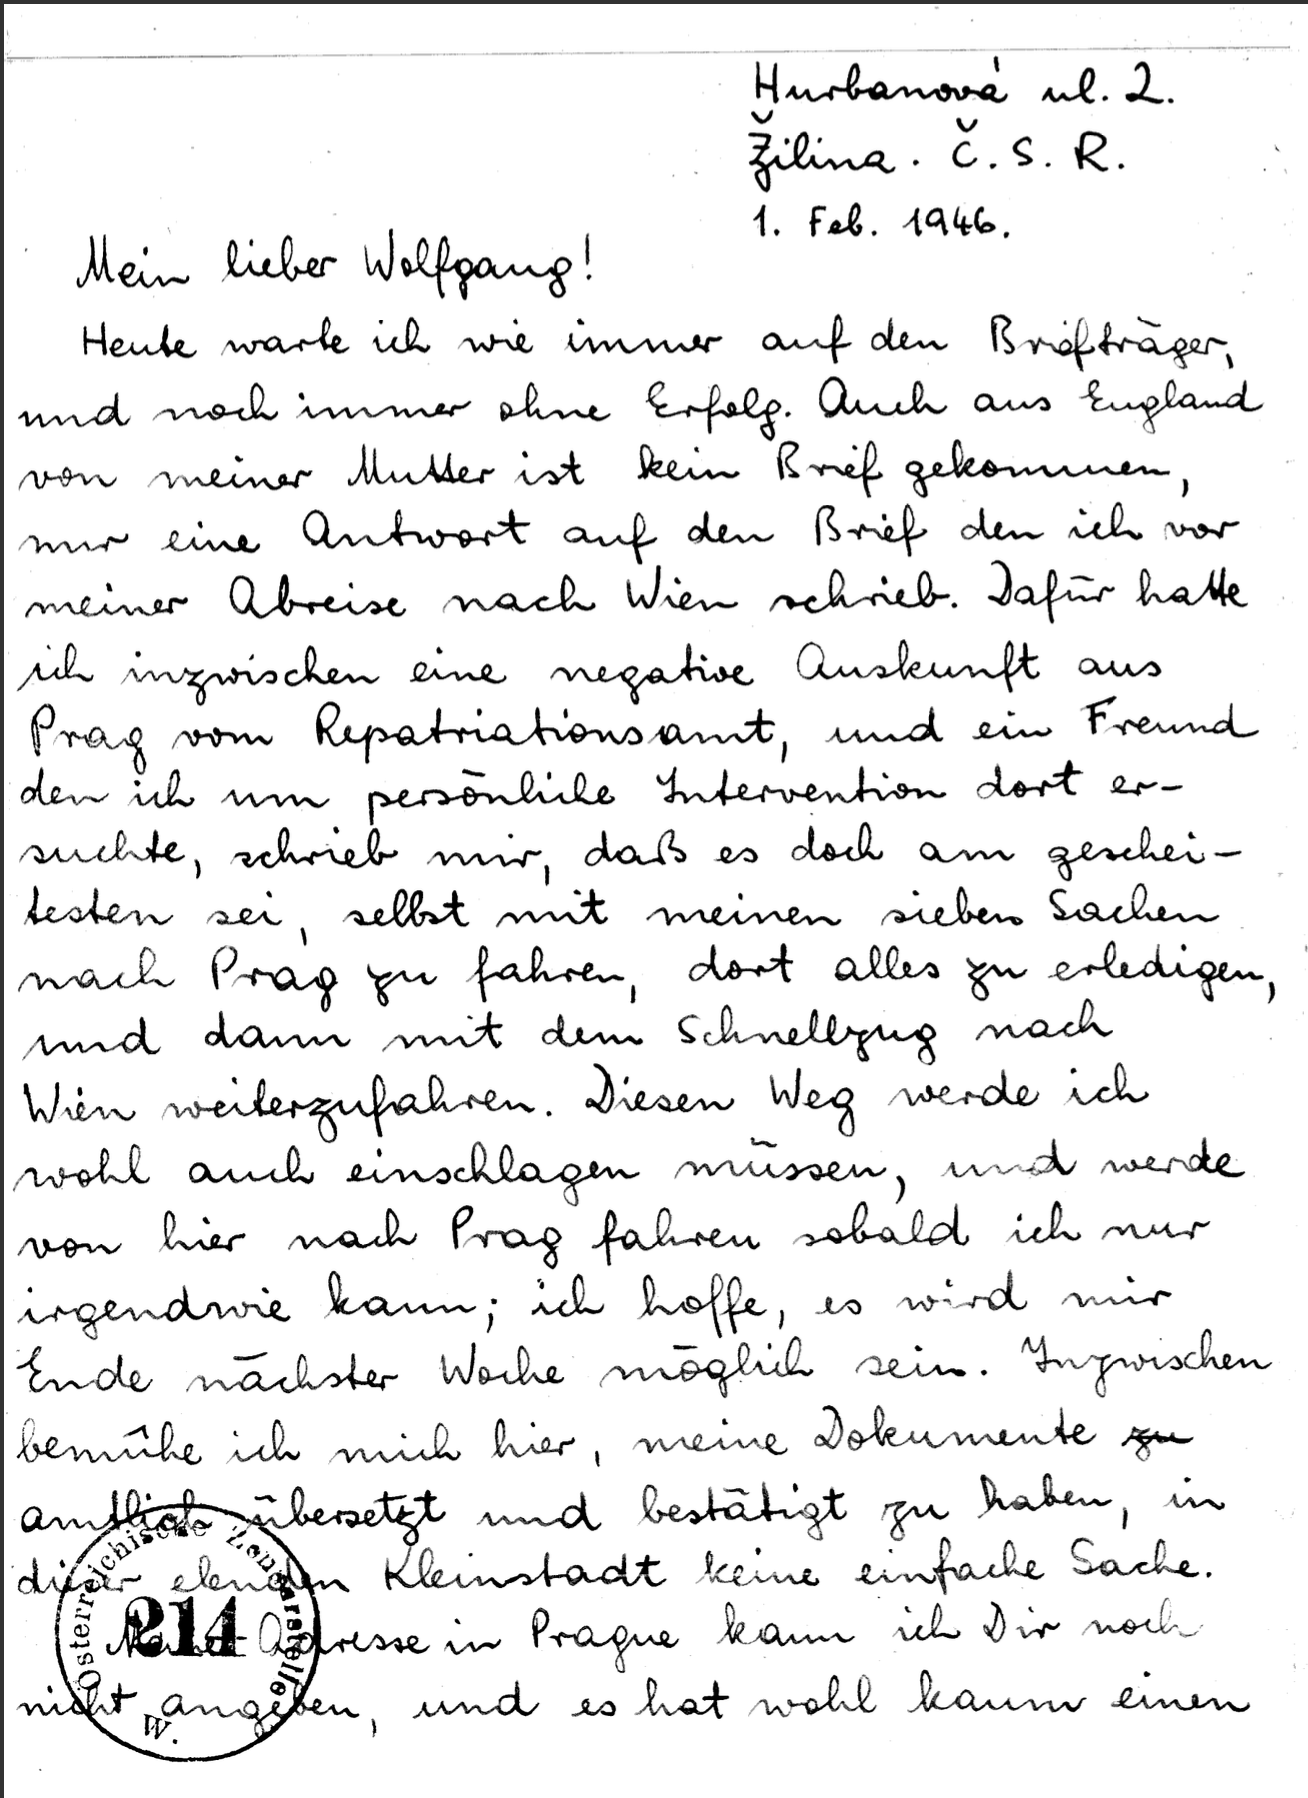 Hurbanová ul. 2.
Žilina. Č. S. R.
1. Feb. 1946.
Mein lieber Wolfgang!
Heute warte ich wie immer auf den Briefträger,
und noch immer ohne Erfolg. Auch aus England
von meiner Mutter ist kein Brief gekommen,
nur eine Antwort auf den Brief den ich vor
meiner Abreise nach Wien schrieb. Dafür hatte
ich inzwischen eine negative Auskunft aus
Prag vom Repatriationsamt, und ein Freund
den ich um persönliche Intervention dort er-
suchte, schrieb mir, daß es doch am geschei-
testen sei, selbst mit meinen sieben Sachen
nach Prag zu fahren, dort alles zu erledigen,
und dann mit dem Schnellzug nach
Wien weiterzufahren. Diesen Weg werde ich
wohl auch einschlagen müssen, und werde
von hier nach Prag fahren sobald ich nur
irgendwie kann; ich hoffe, es wird mir
Ende nächster Woche möglich sein. Inzwischen
bemühe ich mich hier, meine Dokumente zu
amtlich übersetzt und bestätigt zu haben, in
dieser elenden Kleinstadt keine einfache Sache.
Adresse in Prague kann ich Dir noch
nicht angeben, und es hat wohl kaum einen
Österreichische Zensurstelle
214
W.